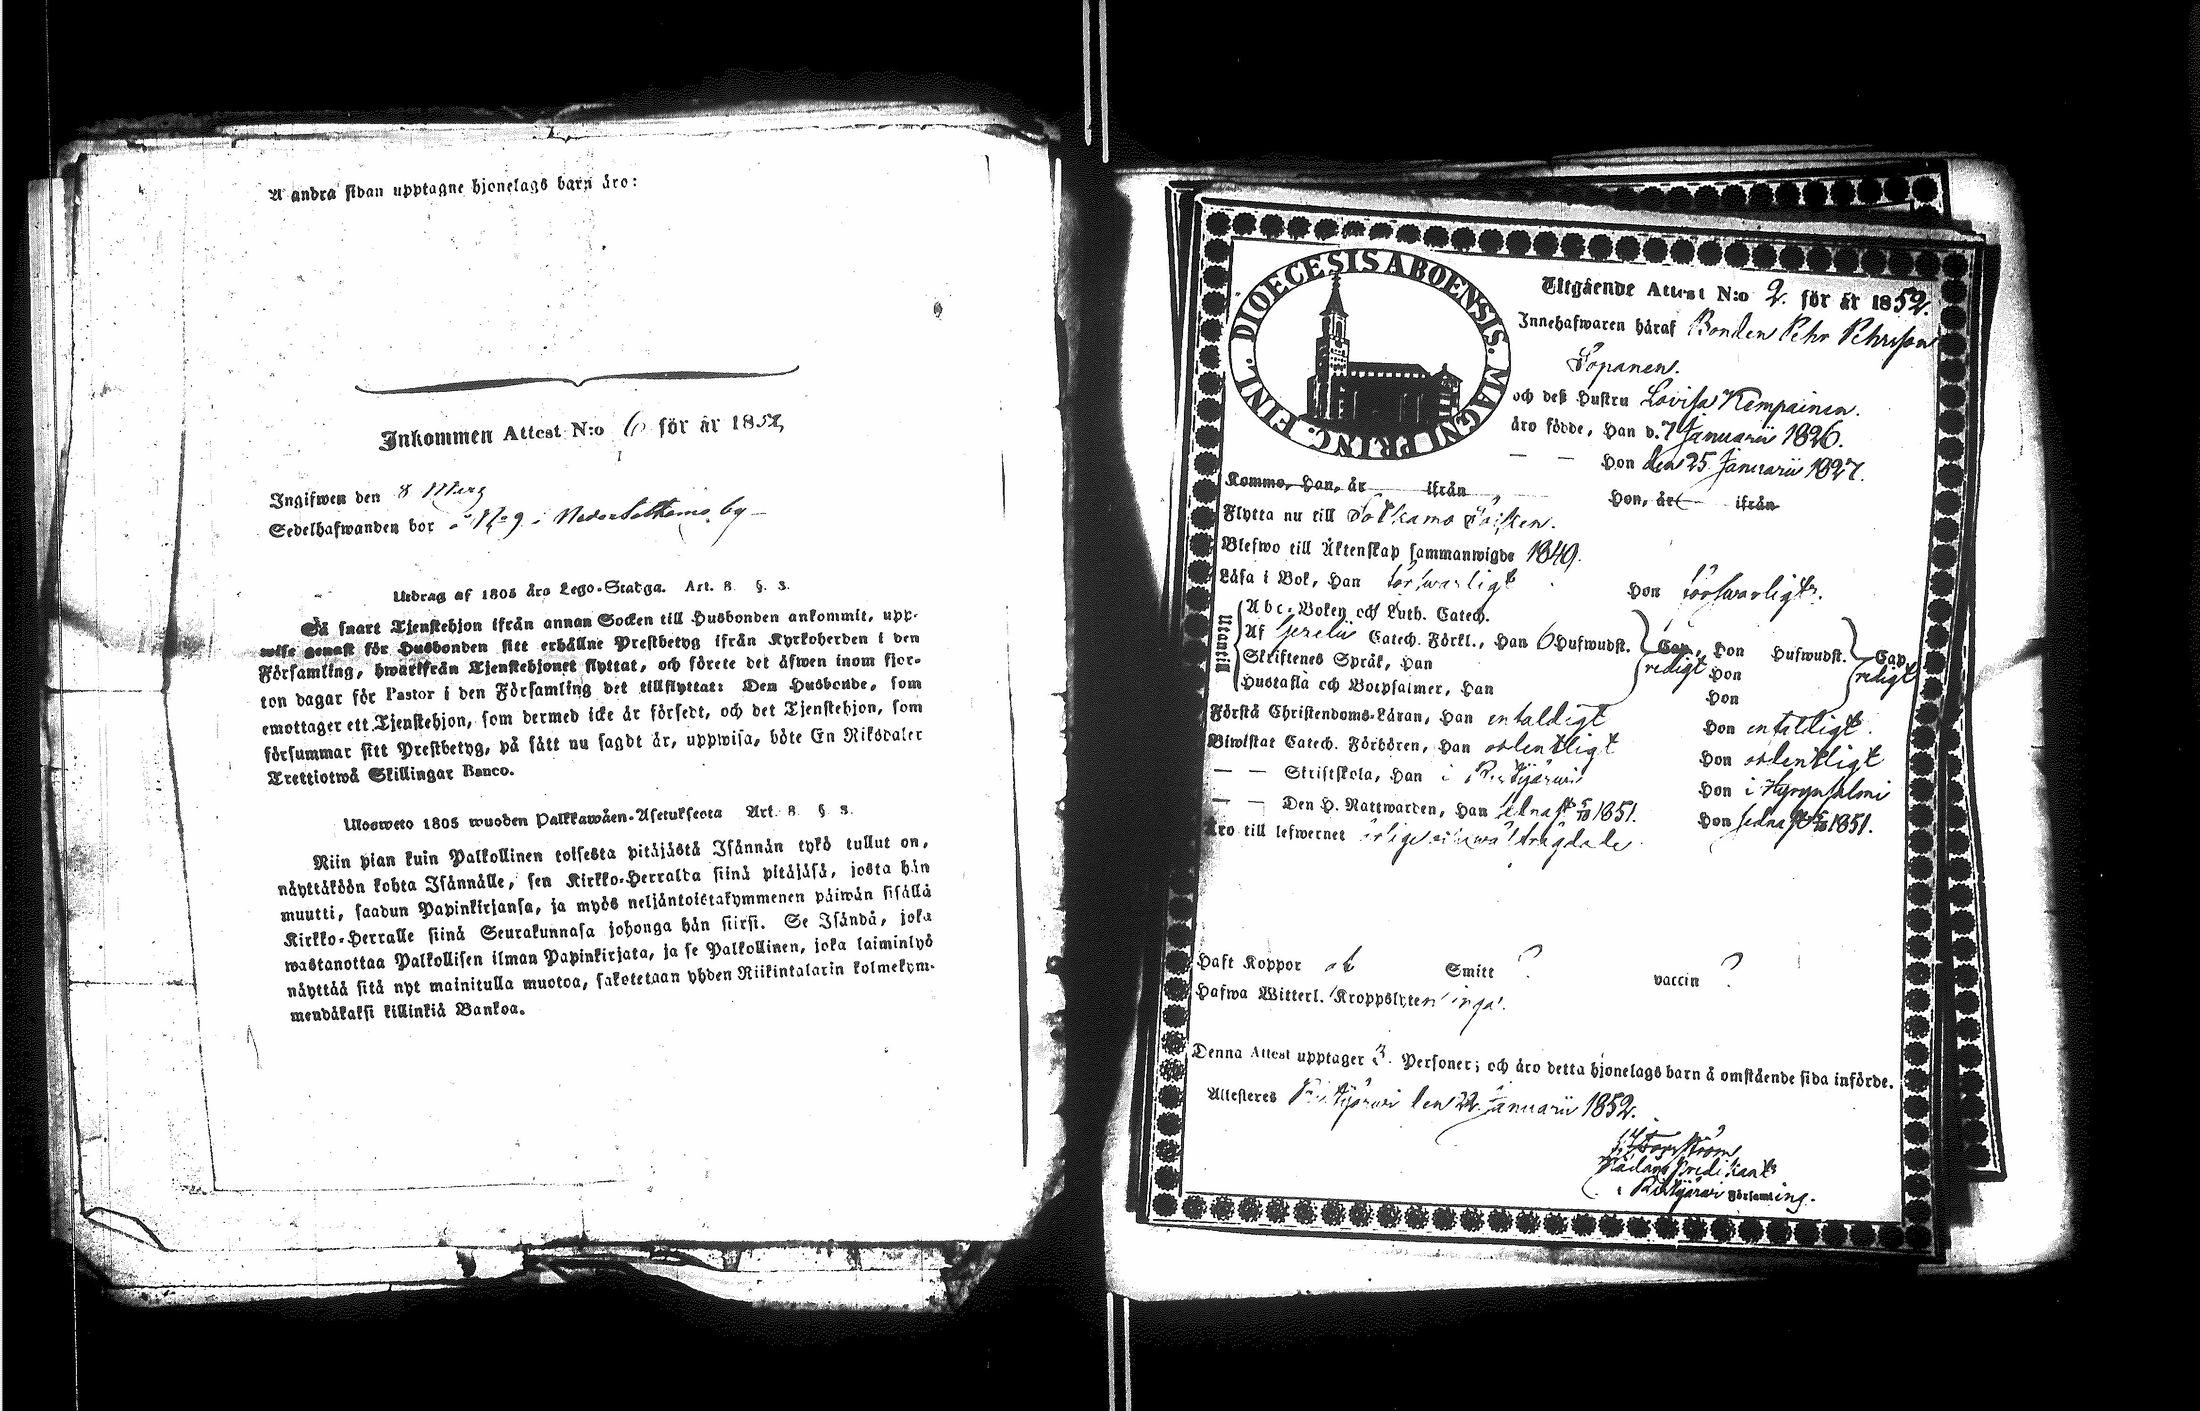 Å andra sidan upptagne hjonelags barn äro:
Inkommen Attest N:o 6 för år 1852,
Ingifwen den 8 Mars
Sedelhafwanden bor å No 9 i Nedersotkamo by
Utdrag af 1805 års Lego-Stadga. Art. 8. §. 3.
Så snart Tjenstehjon ifrån annan Socken till Husbonden ankommit, upp-
wise genast för Husbonden sitt erhållne Prestbetyg ifrån Kyrkoherden i den
Församling, hwarifrån Tjenstehjonet flyttat, och förete det äfwen inom fjor-
ton dagar för Pastor i den Församling det tillflyttat: Den Husbonde, som
emottager ett Tjenstehjon, som dermed icke är försedt, och det Tjenstehjon, som
försummar sitt Prestbetyg, på sätt nu sagdt är, uppwisa, böte En Riksdaler
Trettiotwå Skillingar Banco.
Ulosweto 1805 wuoden Palkkawäen-Asetuksesta Art. 8 § 3.
Niin pian kuin Palkollinen toisesta pitäjästä Isännän tykö tullut on,
näyttäköön kohta Isännälle, sen Kirkko-Herralta siinä pitäjäsä, josta hän
muutti, saadun Papinkirjansa, ja myös neljäntoistakymmenen päiwän sisällä
Kirkko-Herralle siinä Seurakunnasa johonga hän siirsi. Se Isändä, joka
wastanottaa Palkollisen ilman Papinkirjata, ja se Palkollinen, joka laiminlyö
näyttää sitä nyt mainitulla muotoa, sakotetaan yhden Riikintalarin kolmekym-
mendäkaksi killinkiä Bankoa.
FINL. DIOECESIS ABOENSIS. MAGNI PRINC.
Utgående Attest N:o 2. för år 1852.
Innehafwaren häraf Bonden Pehr Pehrsson
Sopanen.
och deß Hustru Lovisa Kempainen.
äro födde, Han d. 7 Januarii 1826.
— — Hon den 25 Januarii 1827.
Kommo, Han, år ifrån Hon, år ifrån
Flytta nu till Sotkamo Socken.
Blefwo till Äktenskap sammanwigde 1849.
Läsa i Bok, Han försvarligt Hon försvarligt.
Utantill
Abc-Boken och Luth. Catech.
Af Gerelii Catech. Förkl., Han 6 Hufwudst. Cap., Hon Hufwudst. Cap.
Skriftenes Språk, Han redigt Hon redigt
Hustafla och Botpsalmer, Han Hon
Förstå Christendoms-Läran, Han enfaldigt Hon enfaldigt.
Biwistat Catech. Förhören, Han ordentligt Hon ordentligt
— — Skriftskola, Han i Ristijärwi Hon i Hyrynsalmi
— — Den H. Nattwarden, Han sednast 5/10 1851. Hon sednast 5/10 1851.
Äro till lefwernet
Haft Koppor ob Smitt ? vaccin ?
Hafwa Witterl. Kroppslyten inga.
Denna Attest upptager 3. Personer; och äro detta hjonelags barn å omstående sida införde.
Attesteres Ristijärwi den 22 Januarii 1852.
i Ristijärwi Församling.